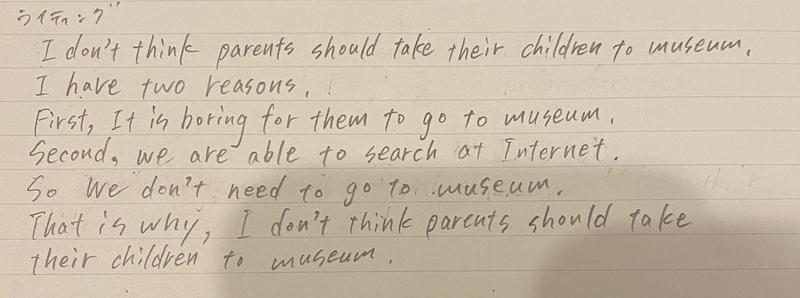 ライティング
I don't think parents should take their children to museum.
I have two reasons.
First, It is boring for them to go to museum.
Second, we are able to search at Internet.
So we don't need to go to museum.
That is why, I don't think parents should take
their children to museum.